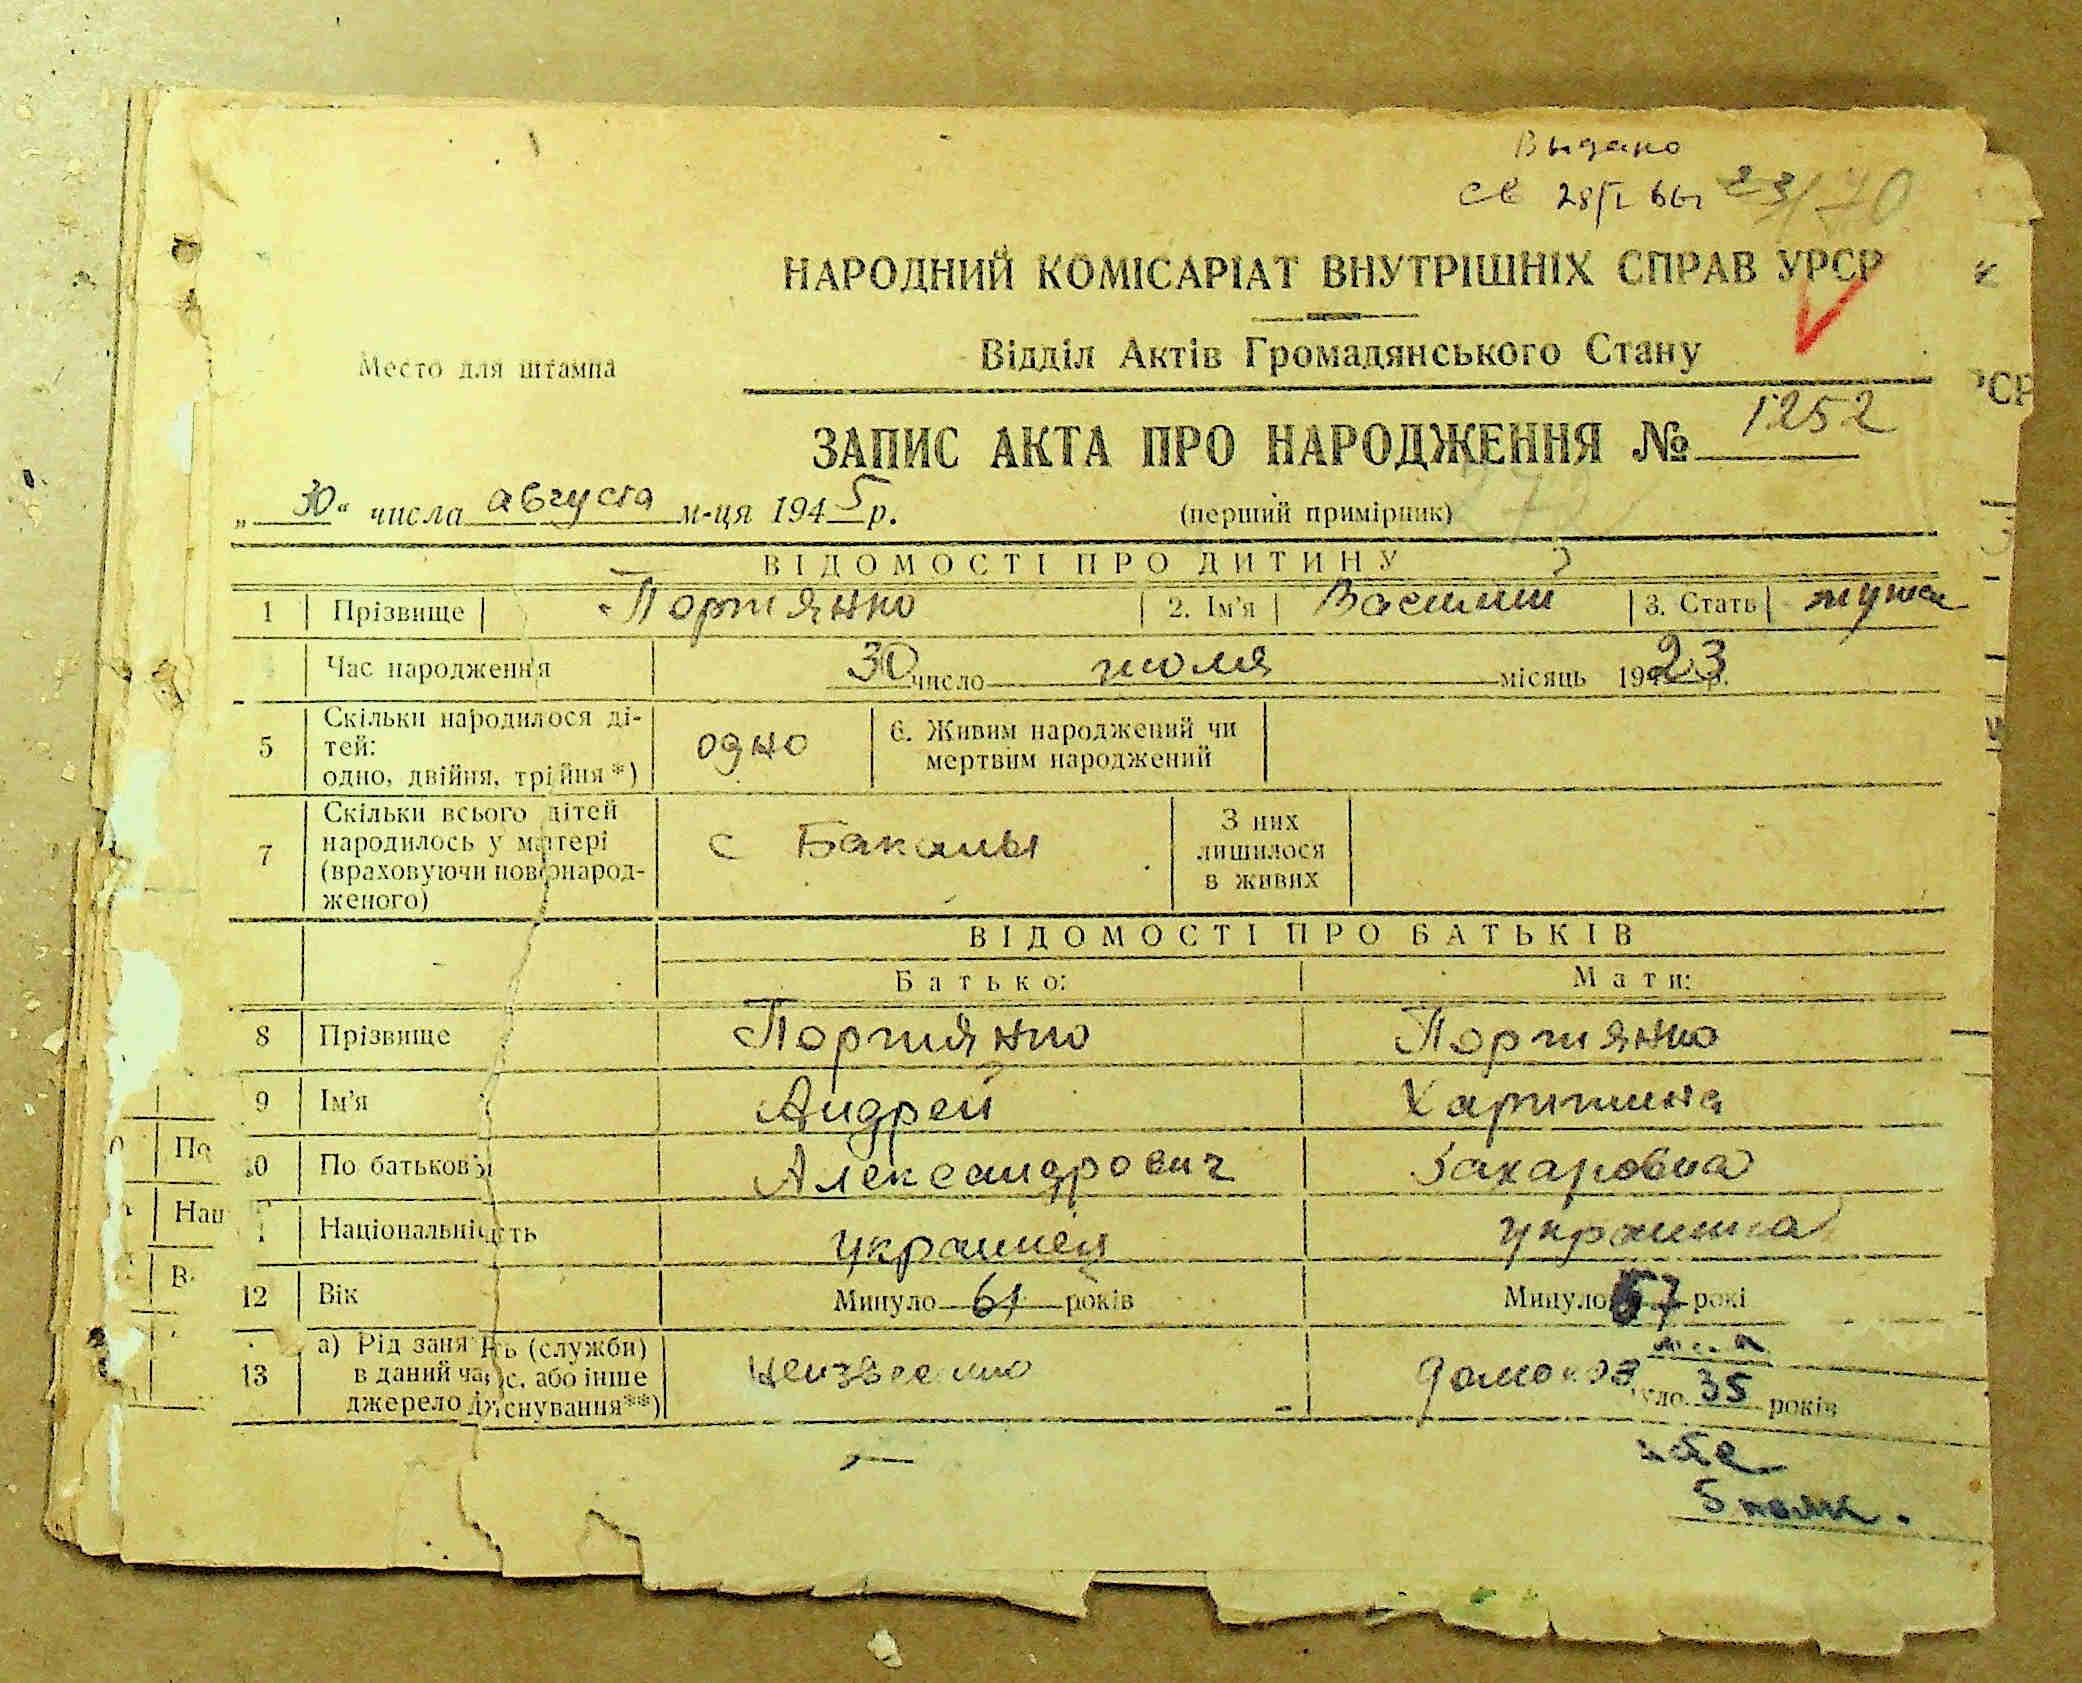 Выдано
св 28/I 66г 23/70
НАРОДНИЙ КОМІСАРІАТ ВНУТРІШНІХ СПРАВ УРСР
Место для штампа
Відділ Актів Громадянського Стану
ЗАПИС АКТА ПРО НАРОДЖЕННЯ № 1252
„30“ числа августа м-ця 1945 р.
(перший примірник)
ВІДОМОСТІ ПРО ДИТИНУ
1 Прізвище Портянко 2. Ім'я Василий 3. Стать мужск
Час народження 30 число июля місяць 1923 р.
5 Скільки народилося ді-
тей:
одно, двійня, трійня*) одно 6. Живим народжений чи
мертвим народжений
7 Скільки всього дітей
народилось у матері
(враховуючи новонарод-
женого) с Бакалы З них
лишилося
в живих
ВІДОМОСТІ ПРО БАТЬКІВ
Батько: Мати:
8 Прізвище Портянко Портянко
9 Ім'я Андрей Харитина
10 По батькові Александрович Захаровна
Національність украинец украинка
12 Вік Минуло 61 років Минуло 67 рокі
13 а) Рід занять (служби)
в даний час, або інше
джерело існування**) неизвестно домохоз
35 років